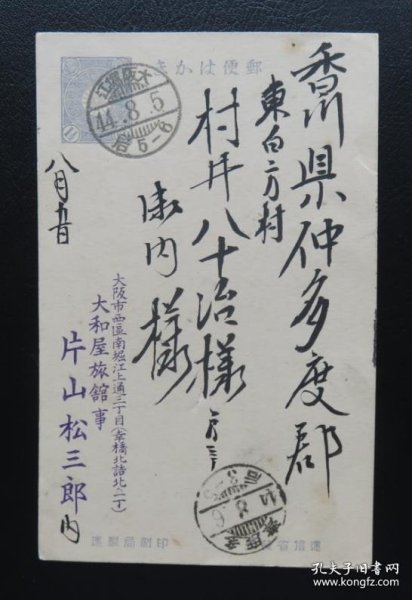 郵便はかき
香川県仲多度郡
東白方村
村井八十治様
御内
様
八月五日
大阪市西區南堀江上通三丁目(幸橋北詰北二丁)
大和屋旅館事
片山松三郎
内
大阪堀江
44.8.5
后5-6
44
8
6
印刷局製造
遞信省
孔夫子旧书网
www.kongfz.com